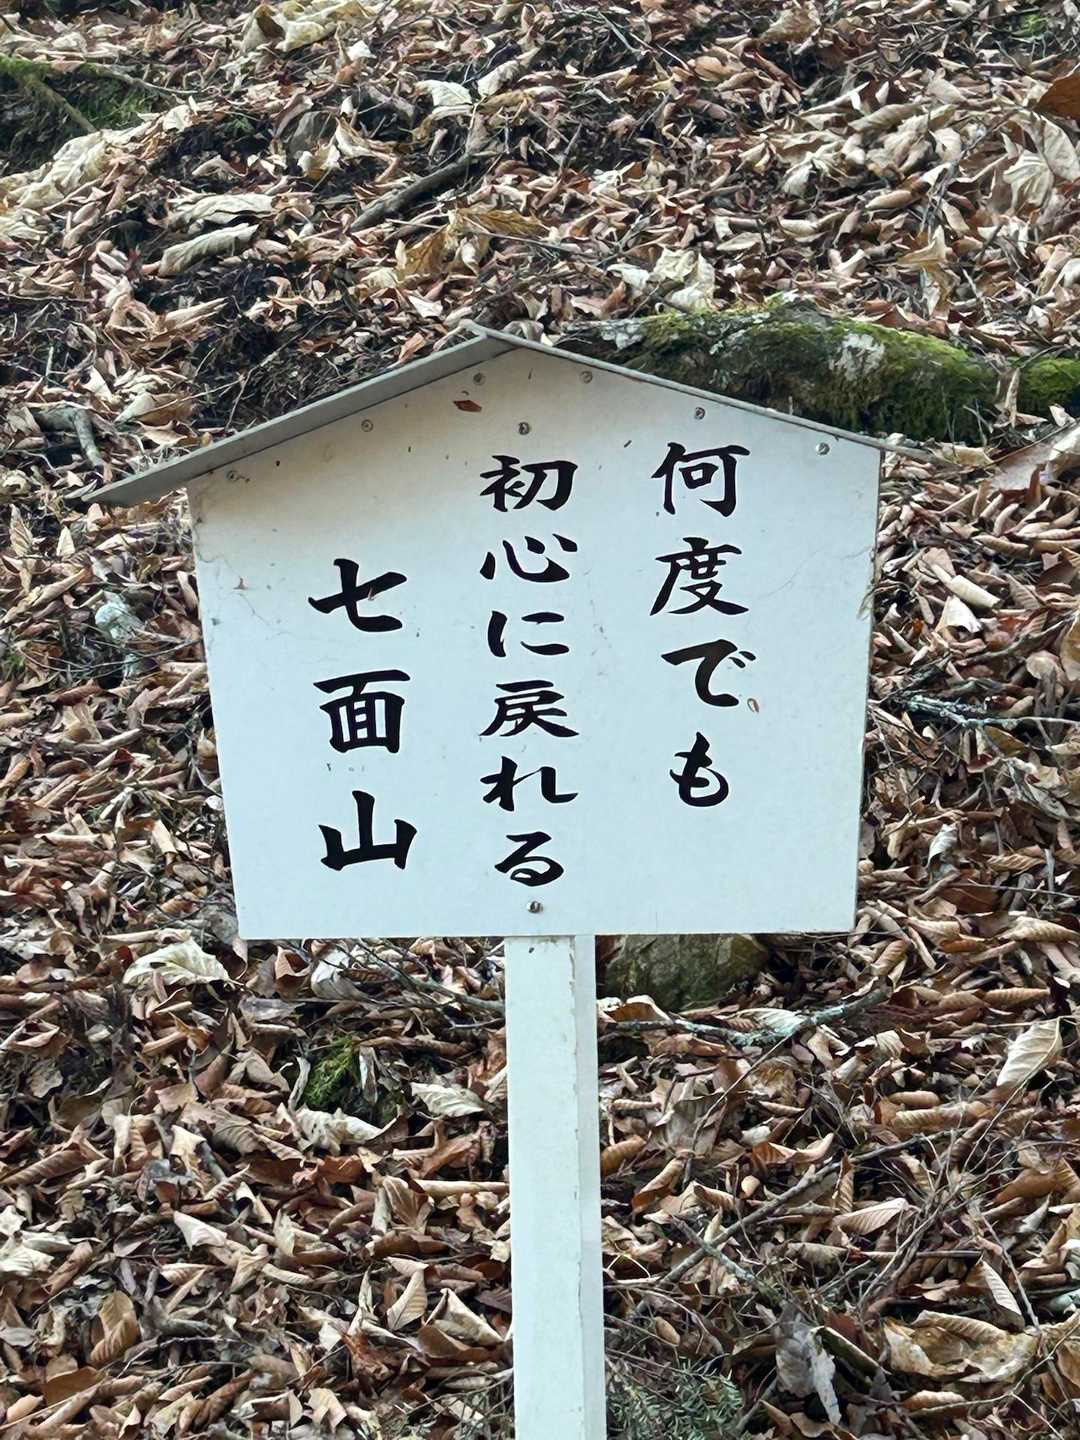 何度でも
初心に戻れる
七面山